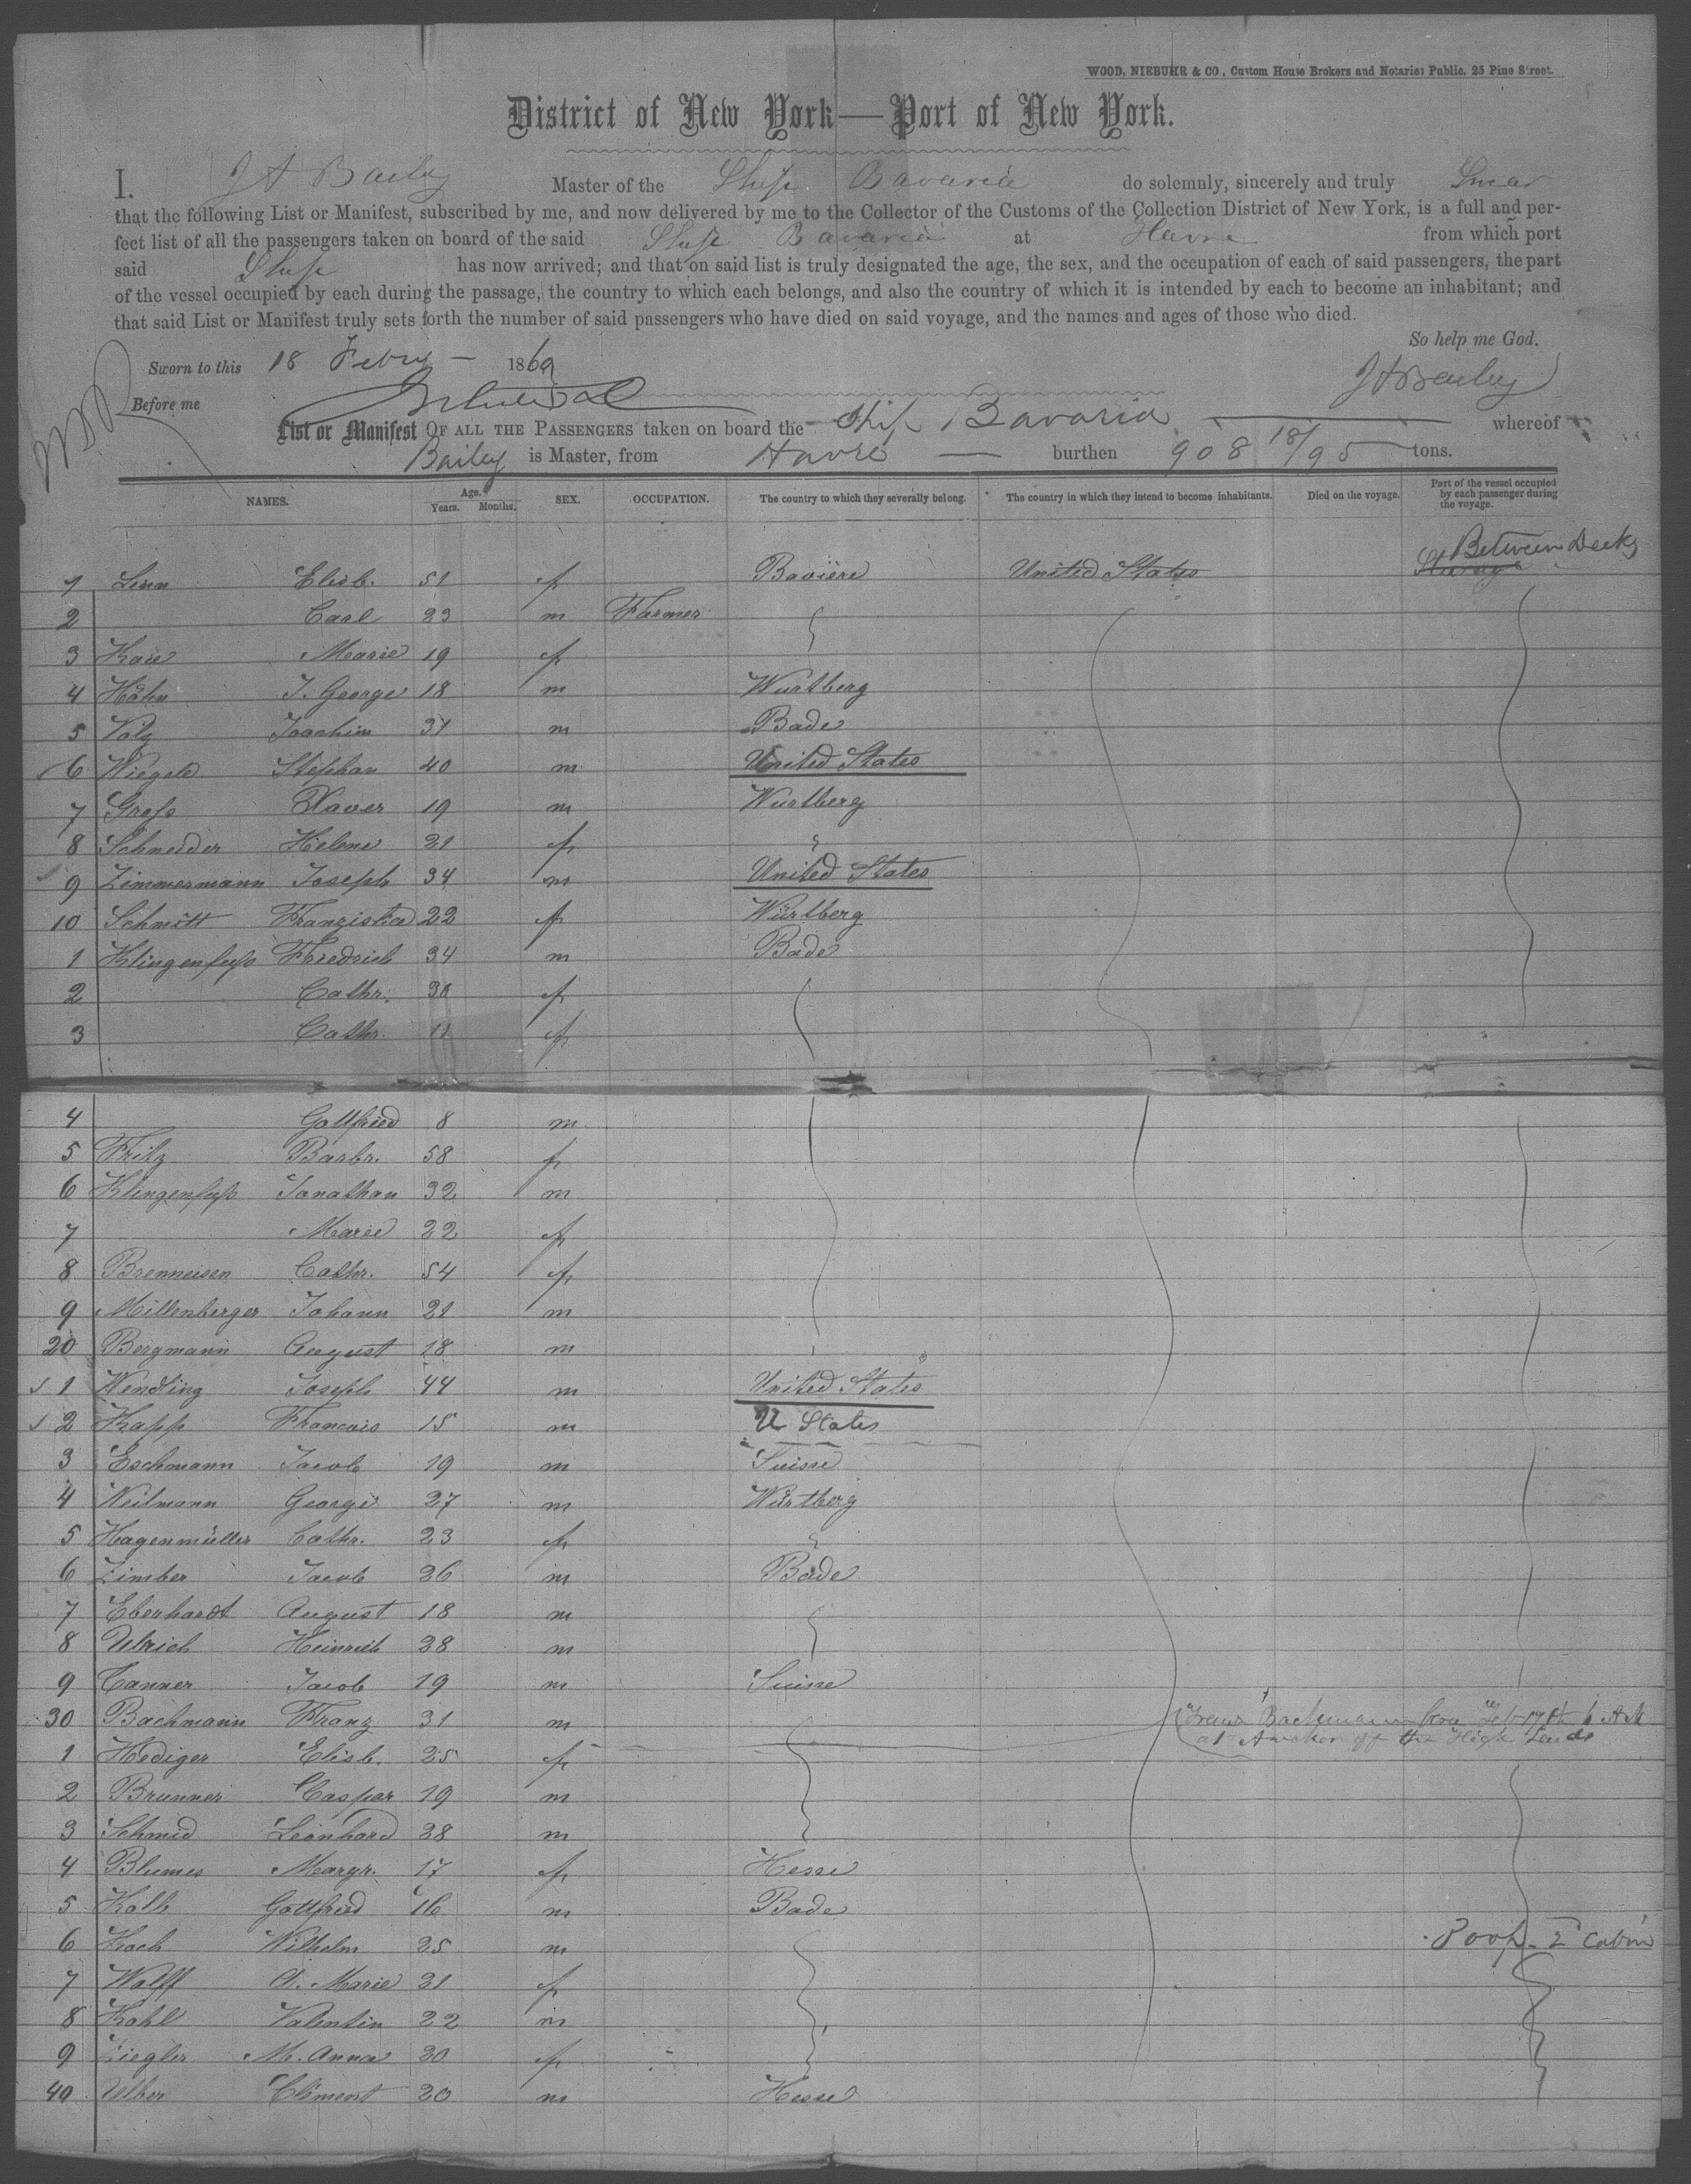 WOOD, NIEBUHR & CO., Custom House Brokers and Notaries Public, 25 Pine Street.
District of New York—Port of New York.
I. J A Bailey Master of the Ship Bavaria do solemnly, sincerely and truly Swear
that the following List or Manifest, subscribed by me, and now delivered by me to the Collector of the Customs of the Collection District of New York, is a full and per-
fect list of all the passengers taken on board of the said Ship Bavaria at Havre from which port
said Ship has now arrived; and that on said list is truly designated the age, the sex, and the occupation of each of said passengers, the part
of the vessel occupied by each during the passage, the country to which each belongs, and also the country of which it is intended by each to become an inhabitant; and
that said List or Manifest truly sets forth the number of said passengers who have died on said voyage, and the names and ages of those who died.
So help me God.
Sworn to this 18 Febry — 1869 J A Bailey
Before me
List or Manifest OF ALL THE PASSENGERS taken on board the Ship Bavaria whereof
Bailey is Master, from Havre — burthen 908 18/95 tons.
NAMES. Age. Years. Months. SEX. OCCUPATION. The country to which they severally belong. The country in which they intend to become inhabitants. Died on the voyage. Part of the vessel occupied by each passenger during the voyage.
Between Decks
1 Linn Elisb. 51 f Bavière United States Steerage
2 Carl 23 m Farmer
3 Marie 19 f
4 Hähn J. George 18 m Wurtberg
5 Volz Joachim 31 m Bade
6 Wiegele Stephan 40 m United States
7 Grofs Xaver 19 m Wurtberg
8 Schneider Helene 21 f
9 Zimmermann Joseph 34 m United States
10 Schmitt Franziska 22 f Würtberg
1 Klingenfufs Friedrich 34 m Bade
2 Cathr. 30 f
3 Cathr. 11 f
4 Gottfried 8 m
5 Fritz Barbr. 58 f
6 Klingenfufs Jonathan 32 m
7 Marie 22 f
8 Brenneisen Cathr. 54 f
9 Millenberger Johann 21 m
20 Bergmann August 18 m
1 Wendling Joseph 44 m United States
2 Kapp Francois 15 m U States
3 Eschmann Jacob 19 m Suisse
4 Weilmann George 27 m Würtberg
5 Hagenmüller Cathr. 23 f
6 Zimber Jacob 26 m Bade
7 Eberhardt August 18 m
8 Ulrich Heinrich 28 m
9 Tanner Jacob 19 m Suisse
30 Bachmann Franz 31 m Franz Bachmann Feb 17th 6 AM
1 Hediger Elisb. 25 f at Anchor off the High Lands
2 Brunner Caspar 19 m
3 Schmid Leonhard 28 m
4 Blumes Margr. 17 f Hesse
5 Kolb Gottfried 16 m Bade
6 Koch Wilhelm 25 m Poop 2 Cabin
7 Wolff A. Marie 21 f
8 Kohl Valentin 22 m
9 Ziegler M. Anna 20 f
40 Uther Clément 20 m Hesse